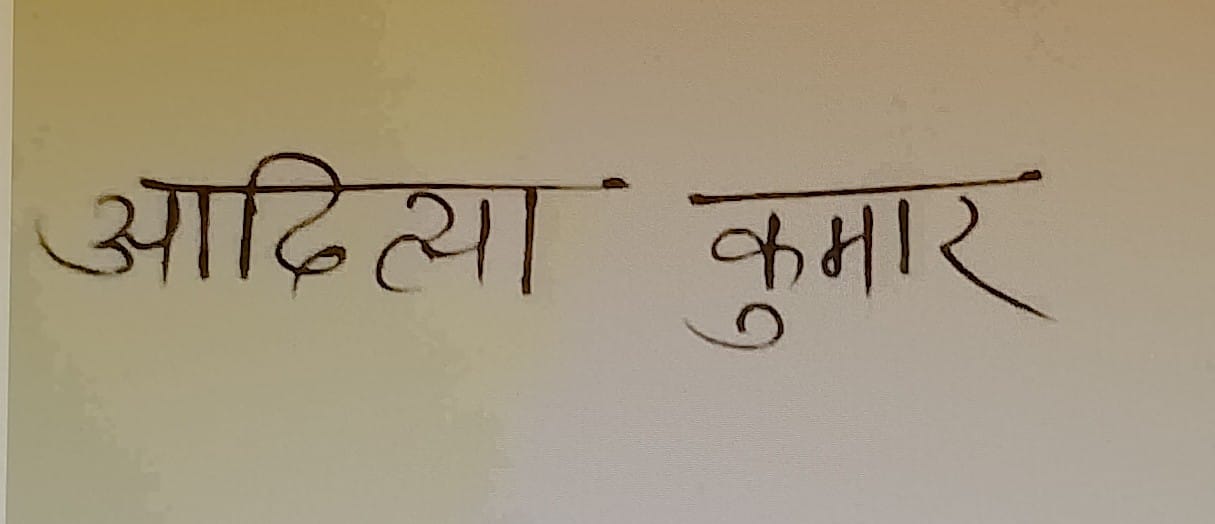 आदित्या कुमार